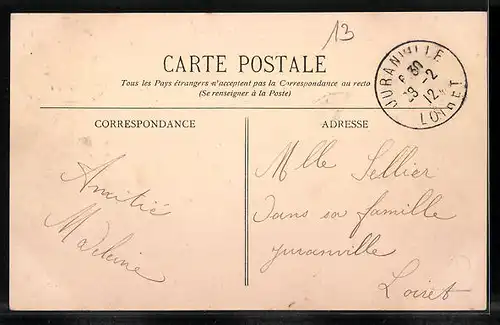 13
CARTE POSTALE
Tous les Pays étrangers n'acceptent pas la Correspondance au recto
(Se renseigner à la Poste)
JURANVILLE
6 30
-2
12
LOIRET
CORRESPONDANCE
Amitié
Madeleine
ADRESSE
Mlle Sellier
Dans sa famille
Juranville
Loiret